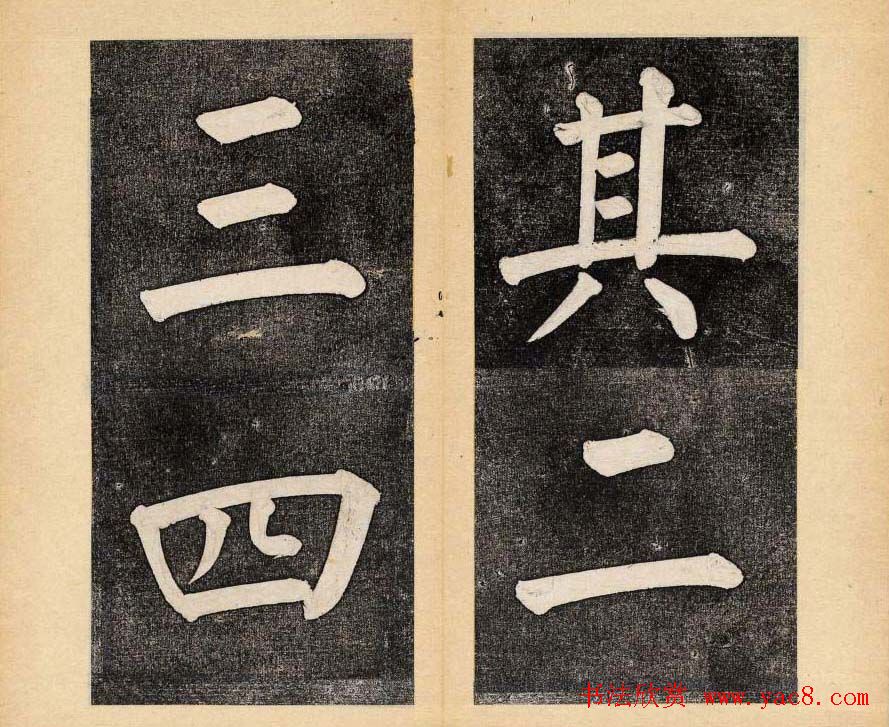 其二
三四
书法欣赏 www.yac8.com